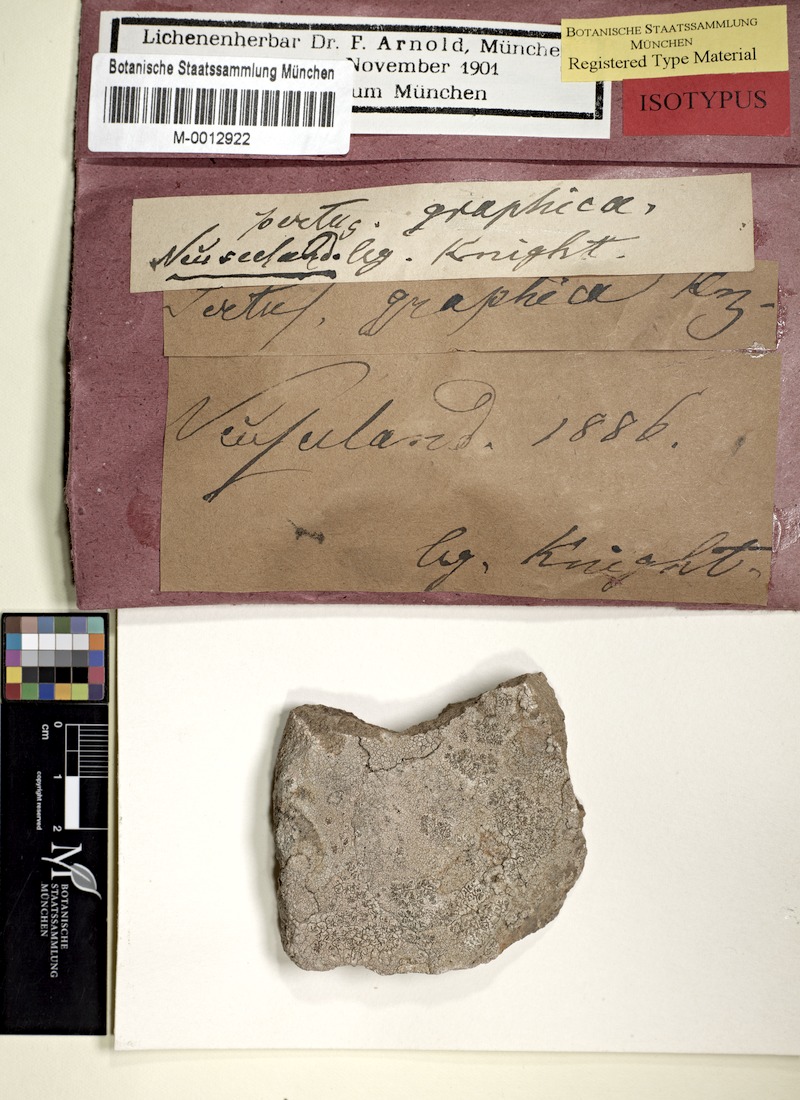 Lichenenherbar Dr. F. Arnold, Münche
November 1901
um München
Botanische Staatssammlung München
M-0012922
BOTANISCHE STAATSSAMMLUNG
MÜNCHEN
Registered Type Material
ISOTYPUS
pertus. graphica.
Neuseeland. leg. Knight.
Pertus. graphica Kn.
Neuseeland. 1886.
leg. Knight.
0
1
2
cm
copyright reserved
BOTANISCHE
STAATSSAMMLUNG
MÜNCHEN